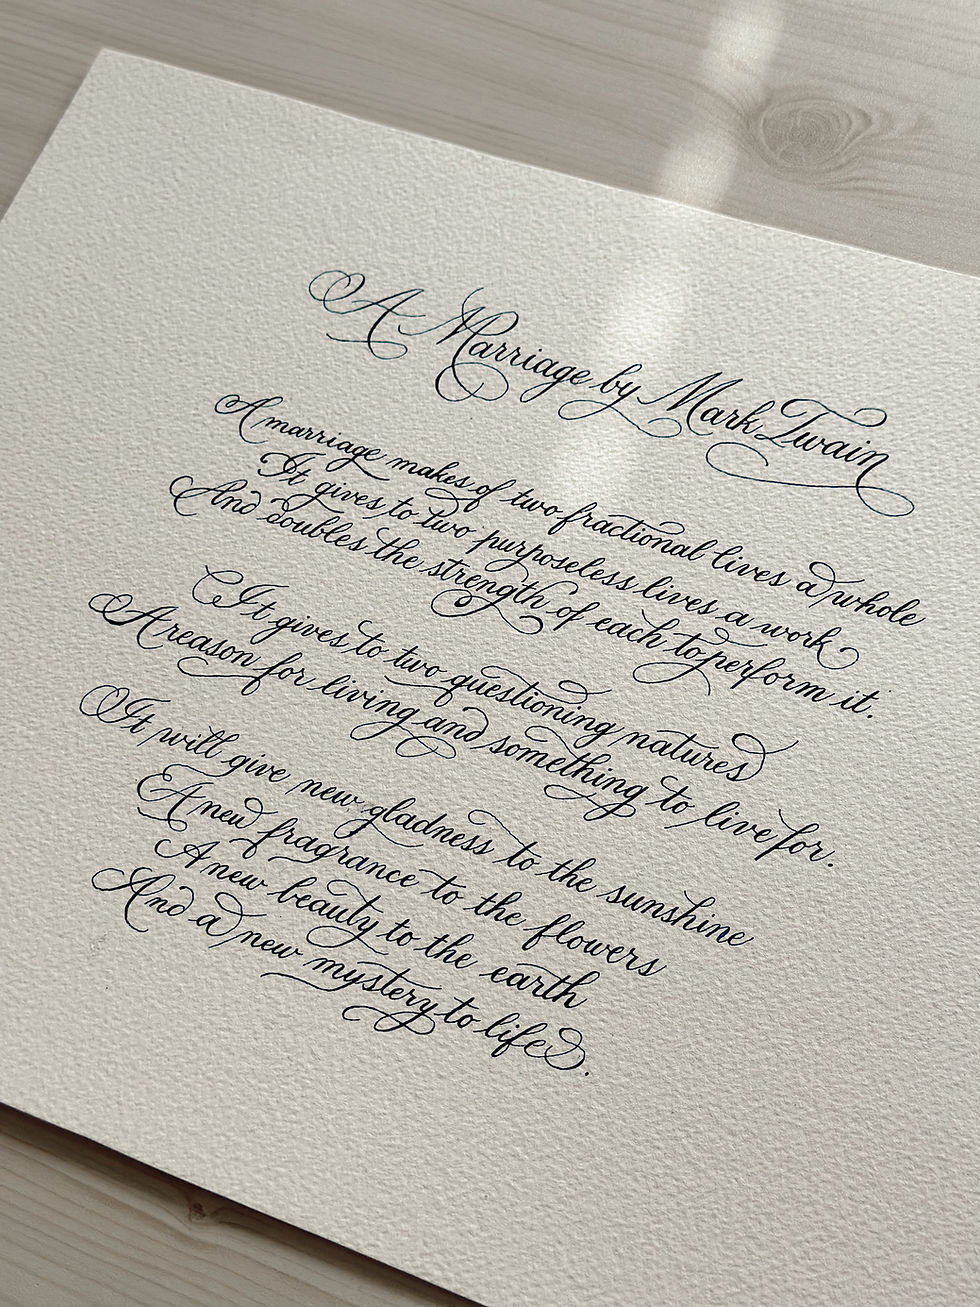 A Marriage by Mark Twain
A marriage makes of two fractional lives a whole
It gives to two purposeless lives a work
And doubles the strength of each to perform it.
It gives to two questioning natures
A reason for living and something to live for.
It will give new gladness to the sunshine
A new fragrance to the flowers
A new beauty to the earth
And a new mystery to life.